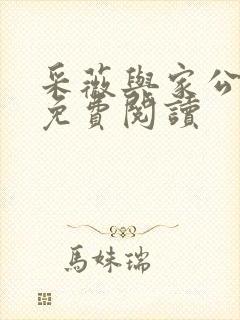 采薇與家公
免費閱讀
馬妹瑞